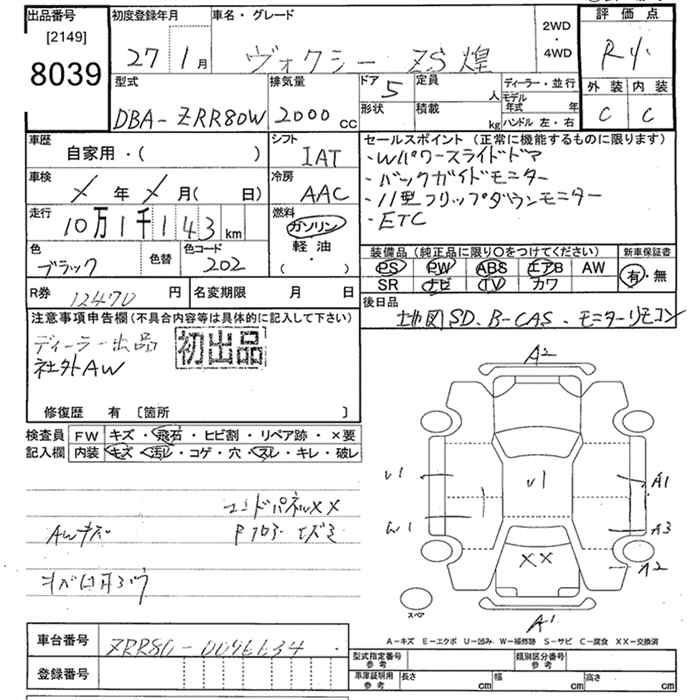 出品番号
[2149]
8039
初度登録年月
27 1月
車名・グレード
ヴォクシー ZS 煌
2WD
・
4WD
評価点
R
外装 内装
C C
型式
DBA-ZRR80W
排気量
2000cc
ドア 5
形状
定員 人
積載 kg
ディーラー・並行
モデル年式 年
ハンドル 左・右
車歴
自家用・( )
シフト
IAT
車検
メ年メ月( 日)
冷房
AAC
走行
10万1千143km
燃料
ガソリン
軽油
( ・ )
色
ブラック
色替
色コード
202
R券 12470円
名変期限 月 日
セールスポイント (正常に機能するものに限ります)
・Wパワースライドドア
・バックガイドモニター
・11型フリップダウンモニター
・ETC
装備品 (純正品に限り○をつけてください)
PS PW ABS エアB AW
SR ナビ TV カワ
新車保証書
有・無
後日品
地図SD、B-CAS、モニターリモコン
注意事項申告欄(不具合内容等は具体的に記入して下さい)
ディーラー出品
社外AW
初出品
修復歴 有 〔箇所 〕
検査員記入欄
FW キズ・飛石・ヒビ割・リペア跡・×要
内装 キズ・汚レ・コゲ・穴・スレ・キレ・破レ
エンドパネルXX
AWキズ
A2
U1
U1
A1
W1
A3
XX
A2
スペア
A1
A－キズ E－エクボ U－凹み W－補修跡 S－サビ C－腐食 XX－交換済
車台番号
ZRR80-0096634
登録番号
型式指定番号
参考
類別区分番号
参考
車庫証明用
参考
長さ cm
幅 cm
高さ cm